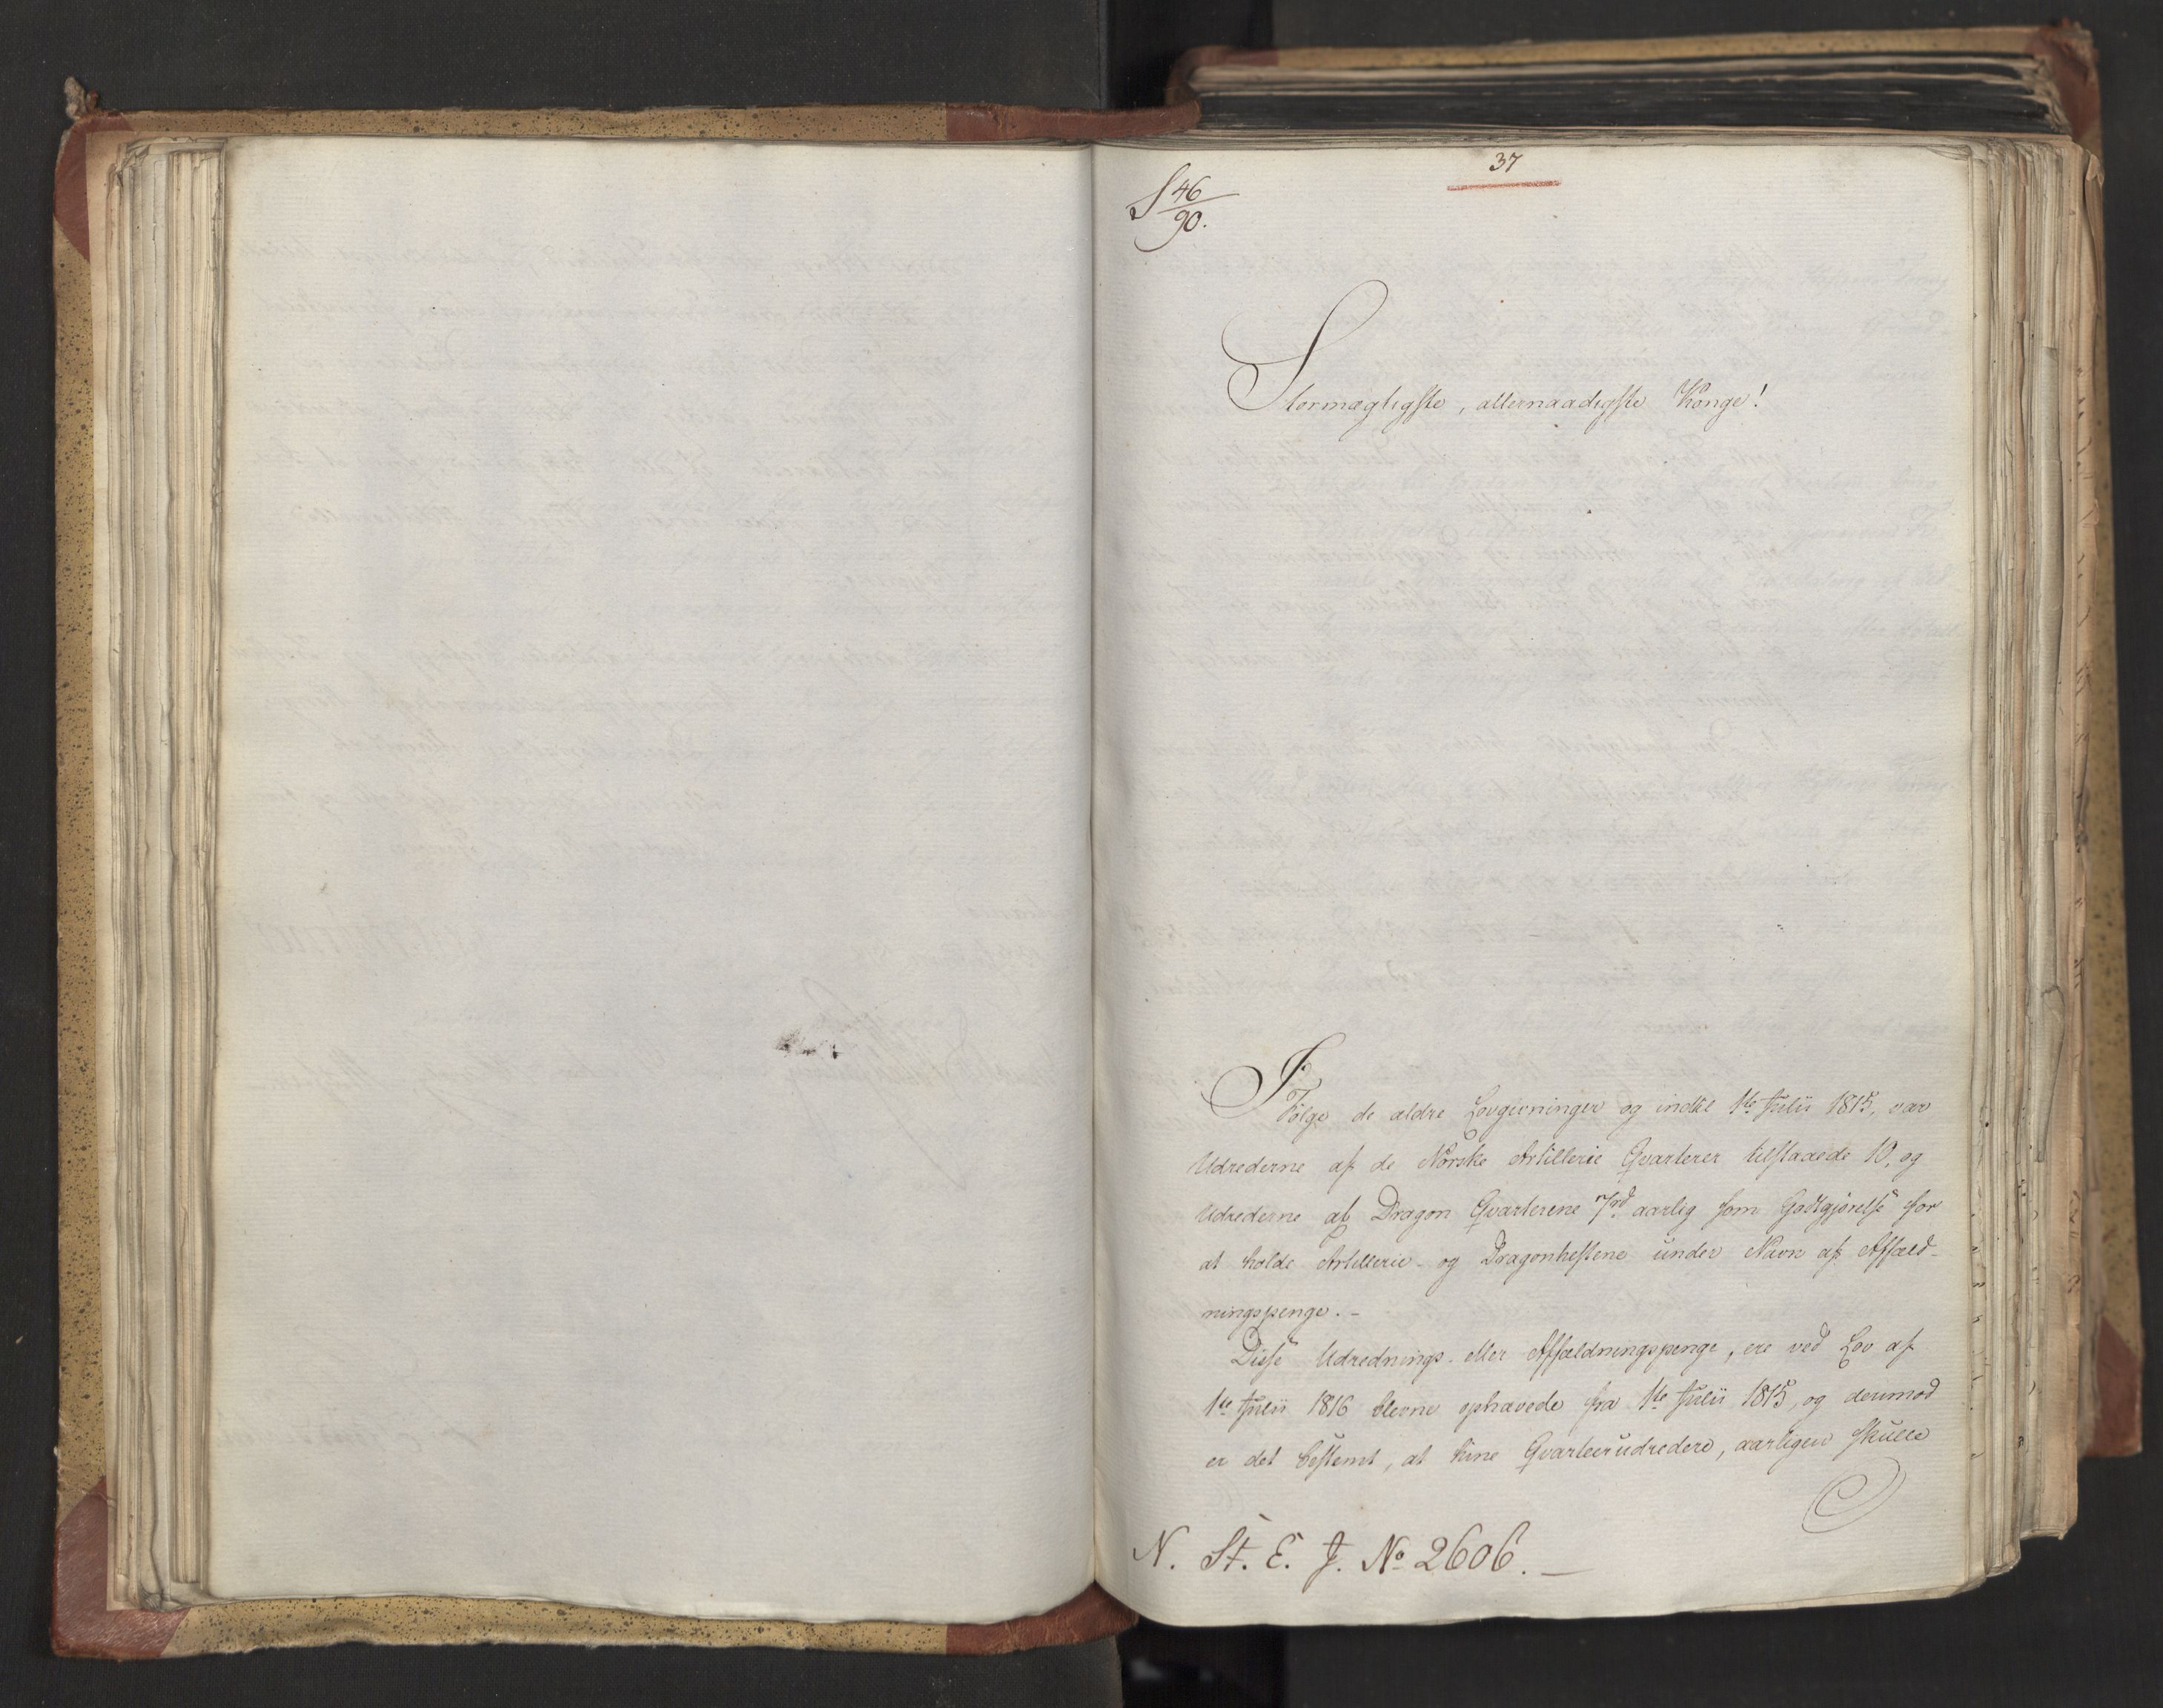 37
S 46/90.
Stormægtigste, allernaadigste Konge!
I Følge de ældre Lovgivninger og indtil 1ste Julii 1815, var
Udrederne af de Norske Artillerie Qvarterer tilstaaede 10, og
Udrederne af Dragon Qvartererne 7rd aarlig som Godtgjørelse for
at holde Artillerie- og Dragonhestene under Navn af Affæld-
ningspenge. -
Disse Udrednings- eller Affældningspenge, ere ved Lov af
1ste Julii 1816 blevne ophævede fra 1ste Julii 1815, og derimod
er det bestemt, at hine Qvarteerudredere, aarligen skulle
N. St. E. J. No 2606. -